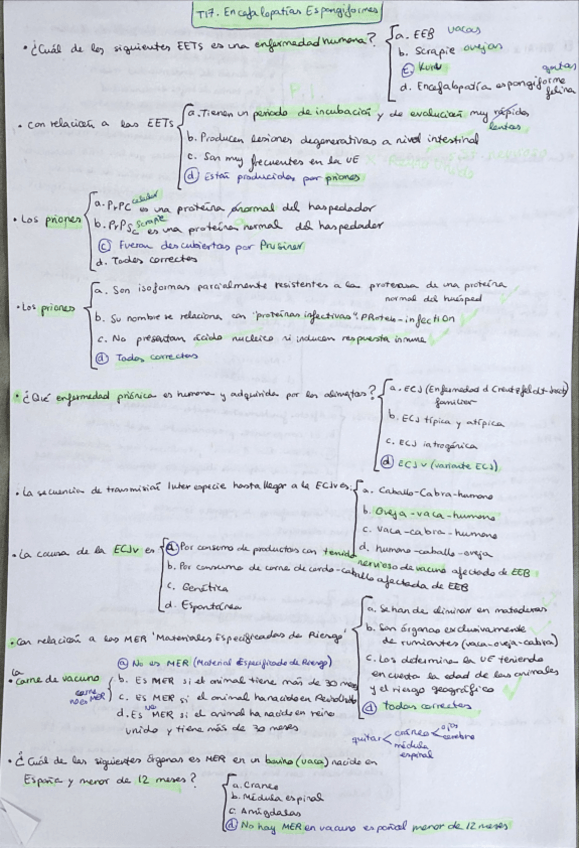 T17. Encefalopatías Espongiformes
• ¿Cuál de los siguientes EETs es una enfermedad humana?
a. EEB vacas
b. Scrapie ovejas
c. Kuru
d. Encefalopatía espongiforme felina gatos
• Con relación a las EETs
a. Tienen un periodo de incubación y de evolución muy rápidos lentas
b. Producen lesiones degenerativas a nivel intestinal
c. Son muy frecuentes en la UE
d. Están producidas por priones
• Los priones
a. PrPC celular es una proteína anormal del hospedador
b. PrPSc Scrapie es una proteína normal del hospedador
c. Fueron descubiertas por Prusiner
d. Todas correctas
• Los priones
a. Son isoformas parcialmente resistentes a la proteasa de una proteína
normal del huésped
b. Su nombre se relaciona con "proteínas infectivas". PRoteu-infectION
c. No presentan ácido nucleico ni inducen respuesta inmune
d. Todas correctas
• ¿Qué enfermedad priónica es humana y adquirida por los alimentos?
a. ECJ (Enfermedad d Creutzfeldt-Jacob)
familiar
b. ECJ típica y atípica
c. ECJ iatrogénica
d. ECJ v (variante ECJ)
• La secuencia de transmisión Inter especie hasta llegar a la ECJv es:
a. Caballo-Cabra-humano
b. Oveja-vaca-humano
c. Vaca-cabra-humano
d. humano-caballo-oveja
• La causa de la ECJv es
a. Por consumo de productos con tenido
nervioso de vacuno afectado de EEB
b. Por consumo de carne de cerdo-caballo afectada de EEB
c. Genética
d. Espontánea
• Con relación a los MER 'Materiales Especificados de Riesgo'
a. Se han de eliminar en mataderos
b. Son órganos exclusivamente
de rumiantes (vaca-oveja-cabra)
c. Los determina la UE teniendo
en cuenta la edad de los animales
y el riesgo geográfico
d. todas correctas
• La carne de vacuno
carne no es MER
a. No es MER (Material Especificado de Riesgo)
b. Es MER si el animal tiene más de 30 meses
c. Es MER si el animal ha nacido en
d. Es MER si el animal ha nacido en reino
unido y tiene más de 30 meses
quitar cráneo ojos cerebro
médula
espinal
• ¿Cuál de los siguientes órganos es MER en un bovino (vaca) nacido en
España y menor de 12 meses?
a. Craneo
b. Médula espinal
c. Amígdalas
d. No hay MER en vacuno español menor de 12 meses